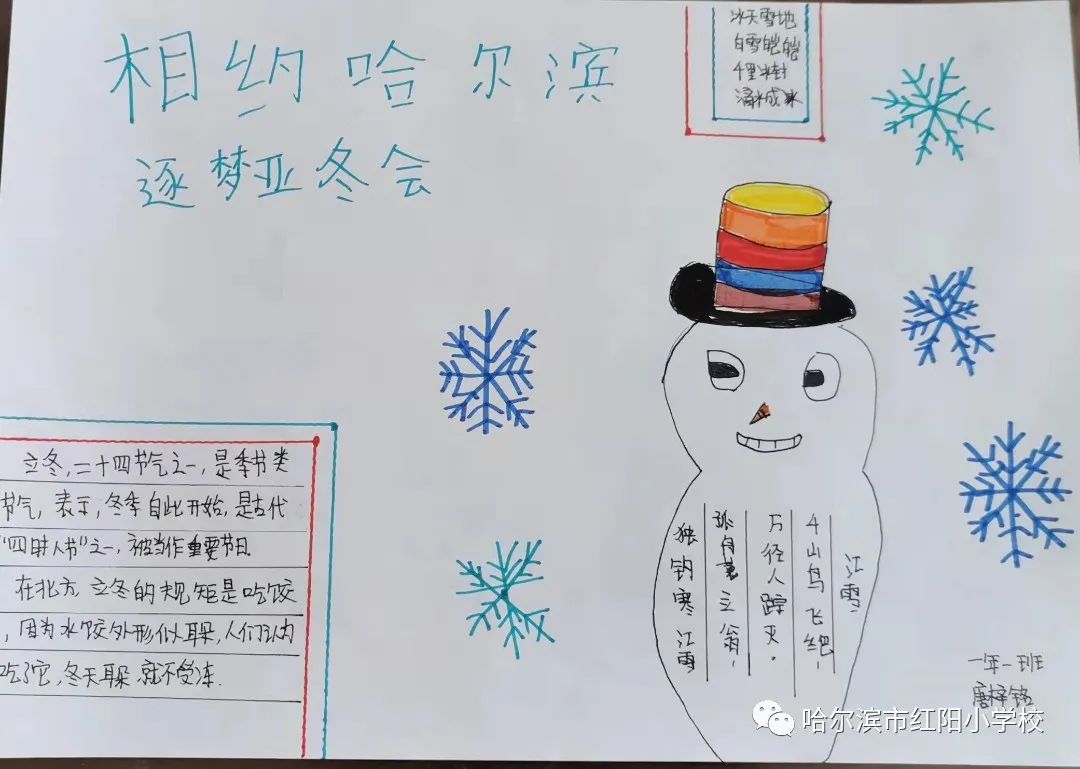 相约哈尔滨
逐梦亚冬会
冰天雪地
白雪皑皑
千里冰封
滴水成冰
立冬,二十四节气之一,是季节类
节气,表示,冬季自此开始,是古代
"四时八节"之一,被当作重要节日
在北方,立冬的规矩是吃饺
,因为水饺外形似耳朵,人们认为
吃了它,冬天耳朵就不受冻.
江雪
千山鸟飞绝,
万径人踪灭。
孤舟蓑立翁,
独钓寒江雪
一年一班
唐梓铭
哈尔滨市红阳小学校